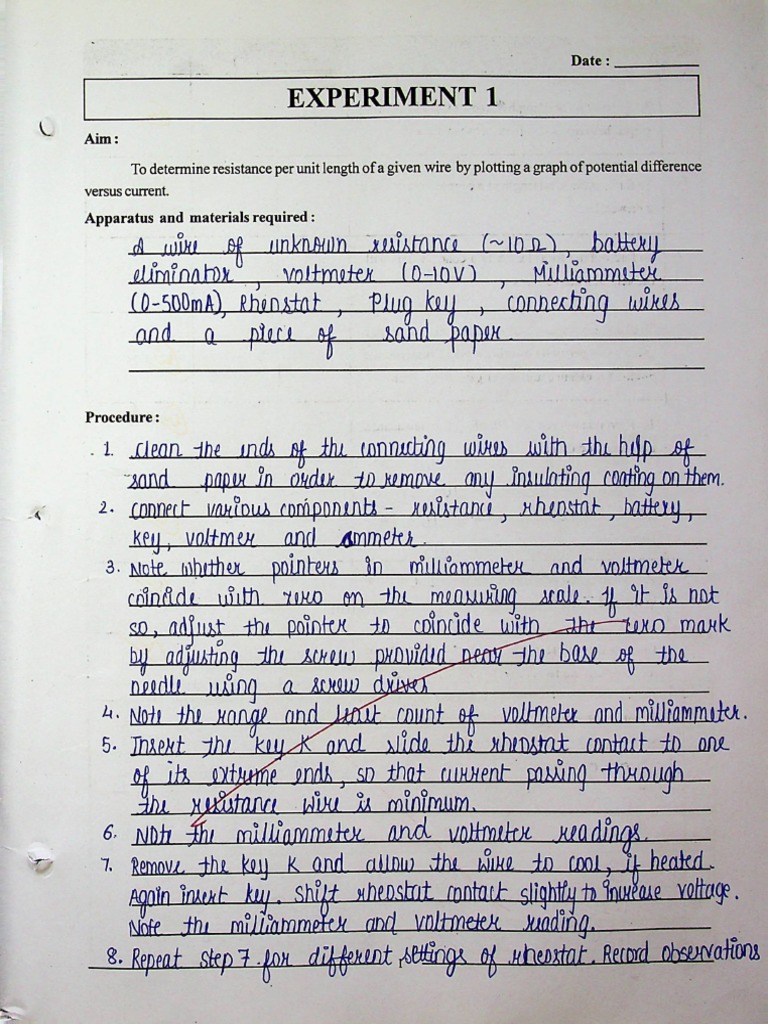 Date : __________
EXPERIMENT 1
Aim :
To determine resistance per unit length of a given wire by plotting a graph of potential difference
versus current.
Apparatus and materials required :
A wire of unknown resistance (~10Ω), battery
eliminator, voltmeter (0-10V), Milliammeter
(0-500mA), Rheostat, Plug key, connecting wires
and a piece of sand paper.
Procedure :
1. Clean the ends of the connecting wires with the help of
sand paper in order to remove any insulating coating on them.
2. Connect various components - resistance, rheostat, battery,
key, voltmer and Ammeter.
3. Note whether pointers in milliammeter and voltmeter
coincide with zero on the measuring scale. If it is not
so, adjust the pointer to coincide with the zero mark
by adjusting the screw provided near the base of the
needle using a screw driver
4. Note the range and least count of voltmeter and milliammeter.
5. Insert the key K and slide the rheostat contact to one
of its extreme ends, so that current passing through
the resistance wire is minimum.
6. Note the milliammeter and voltmeter readings.
7. Remove the key K and allow the wire to cool, if heated.
Again insert key. Shift rheostat contact slightly to increase voltage.
Note the milliammeter and voltmeter reading.
8. Repeat step 7 for different settings of rheostat. Record observations